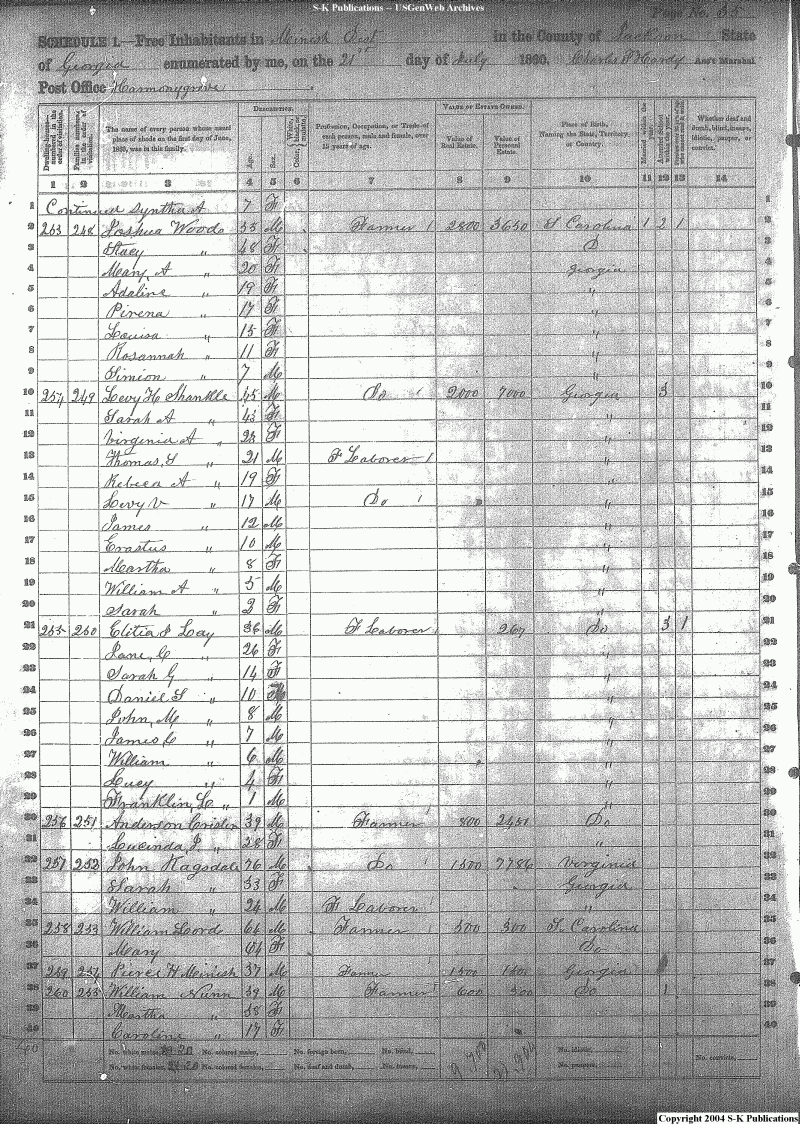 S-K Publications -- USGenWeb Archives
Page No. 35
SCHEDULE 1.—Free Inhabitants in Minish Dist in the County of Jackson State
of Georgia enumerated by me, on the 21st day of July 1860. Charles W Hardy Ass't Marshal
Post Office Harmonygrove
Dwelling-houses—numbered in the order of visitation. Families numbered in the order of visitation. The name of every person whose usual place of abode on the first day of June, 1860, was in this family. DESCRIPTION. Age. Sex. Color, White, black, or mulatto. Profession, Occupation, or Trade of each person, male and female, over 15 years of age. VALUE OF ESTATE OWNED. Value of Real Estate. Value of Personal Estate. Place of Birth, Naming the State, Territory, or Country. Married within the year. Attended School within the year. Whether deaf and dumb, blind, insane, idiotic, pauper, or convict.
1 2 3 4 5 6 7 8 9 10 11 12 13 14
1 Continued Syntha A 7 F 1
2 253 248 Joshua Woods 55 M Farmer 1 2800 3650 S Carolina 1 2 1 2
3 Stacy " 48 F Do 3
4 Meary, A " 20 F Georgia 4
5 Adaline " 19 F " 5
6 Pirena " 17 F " 6
7 Louisa " 15 F " 7
8 Rosannah " 11 F " 8
9 Simion " 7 M " 9
10 254 249 Levy H Shankle 45 M Do 1 2000 7000 Georgia 3 10
11 Sarah A " 43 F " 11
12 Virginia A " 23 F " 12
13 Thomas, S " 21 M F Laborer 1 " 13
14 Rebeca A " 19 F " 14
15 Levy V " 17 M Do 1 " 15
16 James " 12 M " 16
17 Erastus " 10 M " 17
18 Martha " 8 F " 18
19 William A " 5 M " 19
20 Sarah " 2 F " 20
21 255 250 Elitia J Lay 36 M F Laborer 1 267 Do 3 1 21
22 Jane, C " 26 F " 22
23 Sarah G " 14 F " 23
24 Daniel S " 10 M " 24
25 John, M " 8 M " 25
26 James C " 7 M " 26
27 William " 6 M " 27
28 Lucy " 4 F " 28
29 Franklin, L " 1 M " 29
30 256 251 Anderson 39 M Farmer 1 800 2451 Do 30
31 Lucinda, J. " 28 F " 31
32 257 252 John Ragsdale 76 M Do 1 1500 7786 Verginia 32
33 Sarah " 53 F Georgia 33
34 William " 24 M F Laborer 1 " 34
35 258 253 William Lord 64 M Farmer 1 500 500 S. Carolina 35
36 Mary " 64 F Do 36
37 259 254 Pierce H Minish 37 M Farmer 1500 1500 Georgia 37
38 260 255 William Nunn 39 M Farmer 1 600 300 Do 1 38
39 Martha " 38 F 39
40 Caroline " 17 F 40
No. white males, 20 No. colored males, No. foreign born, No. blind, No. idiotic, No. convicts,
No. white females, 20 No. colored females, No. deaf and dumb, No. insane, No. paupers,
Copyright 2004 S-K Publications